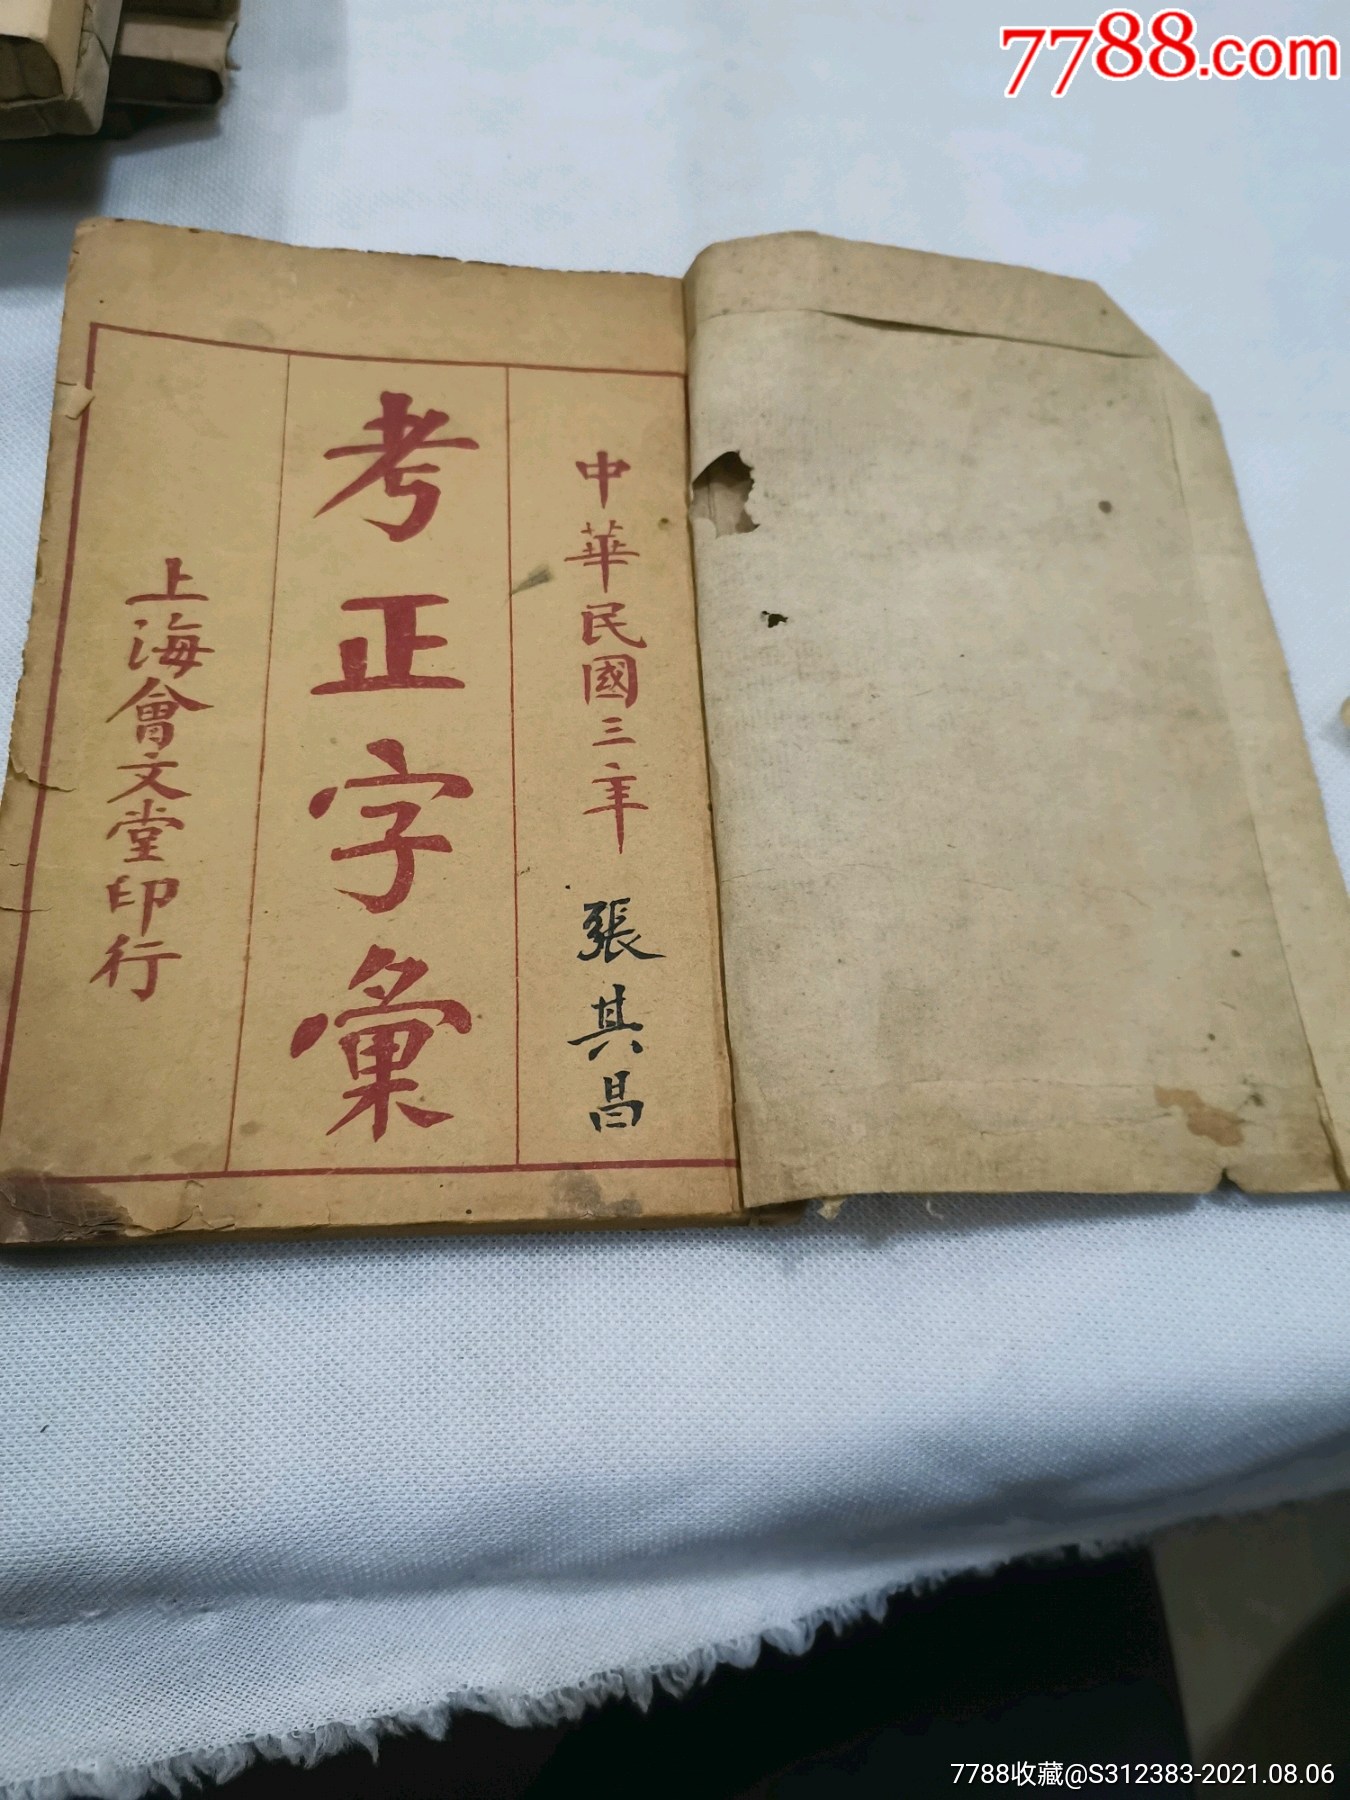 7788.com
中華民國三年
張其昌
考正字彙
上海會文堂印行
7788收藏@S312383-2021.08.06